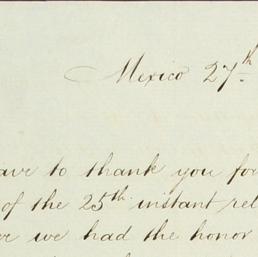 Mexico 27th
ave to thank you for
of the 25th instant rel
we had the honor